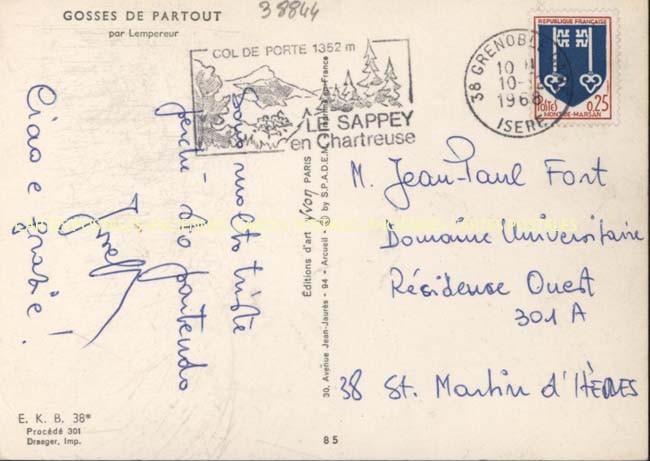 38844
GOSSES DE PARTOUT
par Lempereur
COL DE PORTE 1352 m
LE SAPPEY
en Chartreuse
38 GRENOBLE
10 H
10-
1968
ISERE
REPUBLIQUE FRANÇAISE
POSTES
0,25
MONT-DE-MARSAN
Sono molto triste
perché sto partendo
Ciao e grazie!
Editions d'art Yvon PARIS
30, Avenue Jean-Jaurès - 94 - Arcueil - © by S.P.A.D.E.M.
M. Jean-Paul Fort
Domaine Universitaire
Résidense Ouest
301 A
38 St. Martin d'HÈRES
E. K. B. 38*
Procédé 301
Draeger, Imp.
85